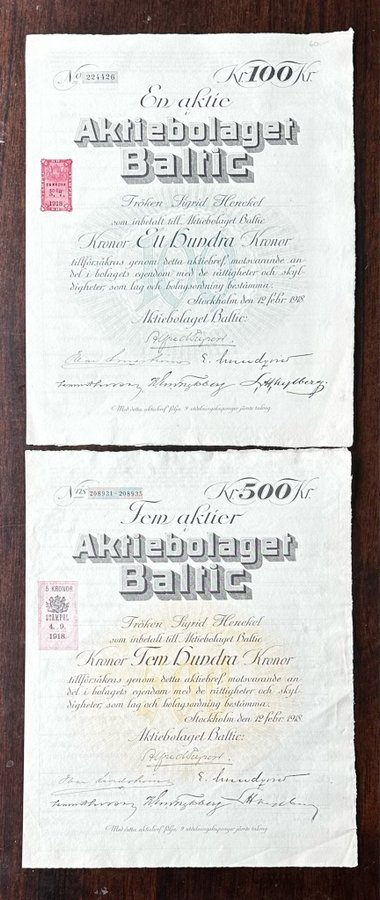 60:-
No 224426
Kr. 100 Kr.
En aktie
Aktiebolaget
Baltic
1918
Fröken Sigrid Henckel
som inbetalt till Aktiebolaget Baltic
Kronor Ett Hundra Kronor
tillförsäkras genom detta aktiebref motsvarande an-
del i bolagets egendom med de rättigheter och skyl-
digheter, som lag och bolagsordning bestämma.
Stockholm den 12 febr 1918
Aktiebolaget Baltic:
E. Lundqvist
Med detta aktiebref följa 9 utdelningskuponger jämte talong
Nris 208931-208935
Kr. 500 Kr.
Fem aktier
Aktiebolaget
Baltic
5 KRONOR
STÄMPEL
4. 9.
1918.
Fröken Sigrid Henckel
som inbetalt till Aktiebolaget Baltic
Kronor Fem Hundra Kronor
tillförsäkras genom detta aktiebref motsvarande an-
del i bolagets egendom med de rättigheter och skyl-
digheter, som lag och bolagsordning bestämma.
Stockholm den 12 febr 1918
Aktiebolaget Baltic:
E. Lundqvist
Med detta aktiebref följa 9 utdelningskuponger jämte talong